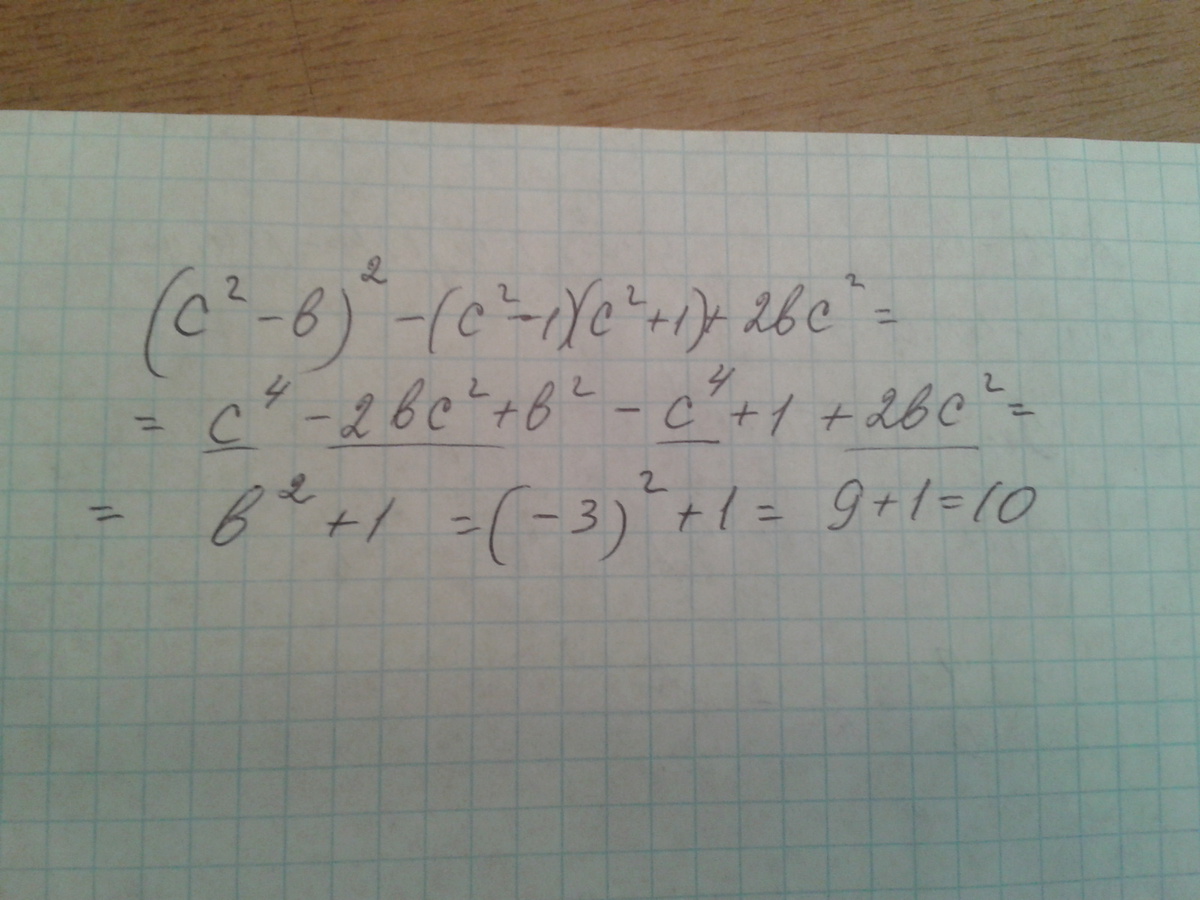 (c² - b)² - (c² - 1)(c² + 1) + 2bc² =
= c⁴ - 2bc² + b² - c⁴ + 1 + 2bc² =
= b² + 1 = (-3)² + 1 = 9 + 1 = 10